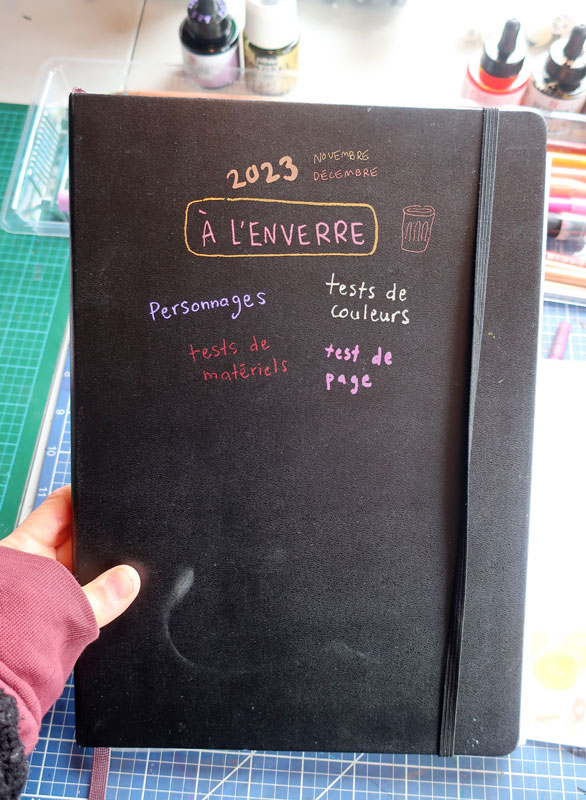 2023
NOVEMBRE
DÉCEMBRE
À L'ENVERRE
Personnages
tests de
couleurs
tests de
matériels
test de
page
10
11